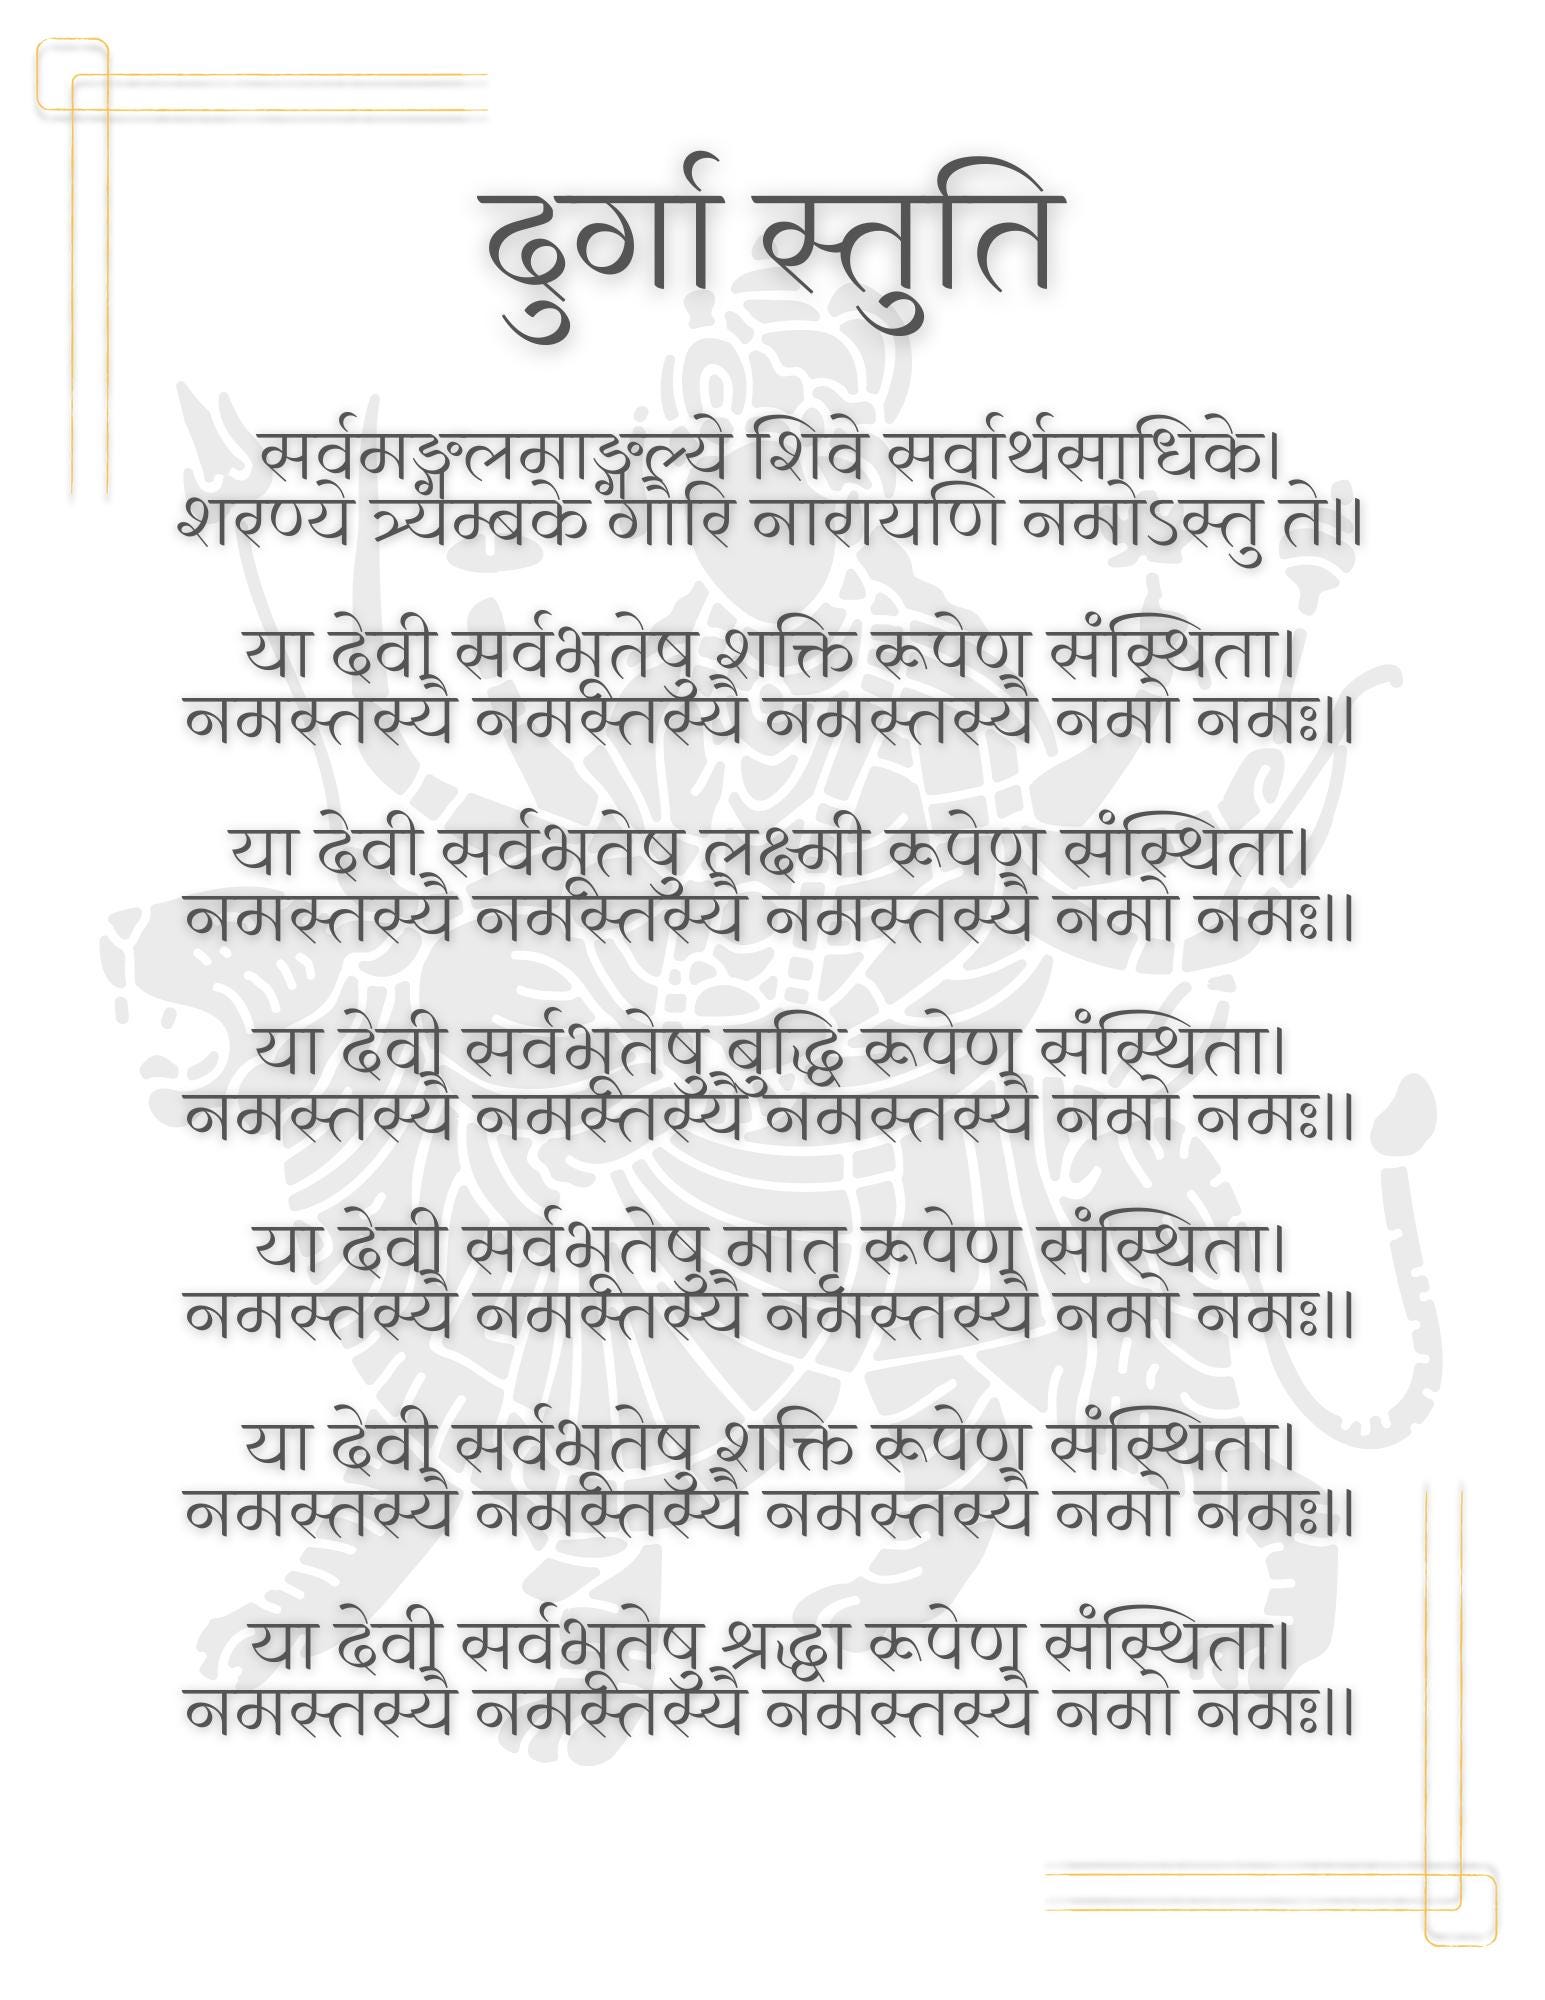 दुर्गा स्तुति
सर्वमङ्गलमाङ्गल्ये शिवे सर्वार्थसाधिके।
शरण्ये त्र्यम्बके गौरि नारायणि नमोऽस्तु ते॥
या देवी सर्वभूतेषु शक्ति रूपेण संस्थिता।
नमस्तस्यै नमस्तस्यै नमस्तस्यै नमो नमः।।
या देवी सर्वभूतेषु लक्ष्मी रूपेण संस्थिता।
नमस्तस्यै नमस्तस्यै नमस्तस्यै नमो नमः।।
या देवी सर्वभूतेषु बुद्धि रूपेण संस्थिता।
नमस्तस्यै नमस्तस्यै नमस्तस्यै नमो नमः।।
या देवी सर्वभूतेषु मातृ रूपेण संस्थिता।
नमस्तस्यै नमस्तस्यै नमस्तस्यै नमो नमः।।
या देवी सर्वभूतेषु शक्ति रूपेण संस्थिता।
नमस्तस्यै नमस्तस्यै नमस्तस्यै नमो नमः।।
या देवी सर्वभूतेषु श्रद्धा रूपेण संस्थिता।
नमस्तस्यै नमस्तस्यै नमस्तस्यै नमो नमः।।